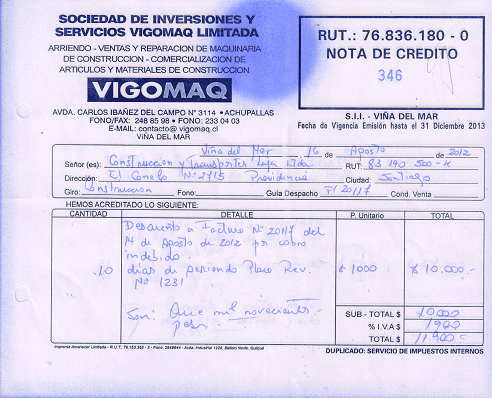 SOCIEDAD DE INVERSIONES Y
SERVICIOS VIGOMAQ LIMITADA
ARRIENDO - VENTAS Y REPARACION DE MAQUINARIA
DE CONSTRUCCION - COMERCIALIZACION DE
ARTICULOS Y MATERIALES DE CONSTRUCCION
VIGOMAQ
AVDA. CARLOS IBAÑEZ DEL CAMPO Nº 3114 • ACHUPALLAS
FONO/FAX: 248 85 98 • FONO: 233 04 03
E-MAIL: contacto@vigomaq.cl
VIÑA DEL MAR
RUT.: 76.836.180 - 0
NOTA DE CREDITO
346
S.I.I. - VIÑA DEL MAR
Fecha de Vigencia Emisión hasta el 31 Diciembre 2013
Viña del Mar, 16 de Agosto de 2012
Señor (es): Construccion y Transportes Ltda RUT: 83 190 500-K
Dirección: El Nº 2715 Providencia Ciudad: Santiago
Giro: Construccion Fono: Guía Despacho F/20117 Cond. Venta
HEMOS ACREDITADO LO SIGUIENTE:
CANTIDAD DETALLE P. Unitario TOTAL
Descuento a Factura Nº 20117 del
14 de Agosto de 2012 por cobro
indebido.
10 dias de Placa Rev. $ 1000 $ 10.000.-
Nº 1231
Son: Once mil novecientos SUB - TOTAL $ 10000
pesos. % I.V.A $ 1900
TOTAL $ 11.900.-
Imprenta Amanecer Limitada - R.U.T.: Avda. Industrial 1228, Belloto Norte, Quilpué
DUPLICADO: SERVICIO DE IMPUESTOS INTERNOS